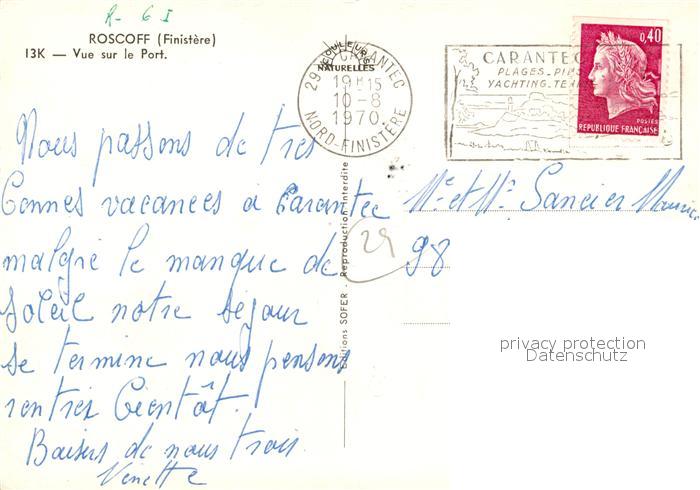 R- 6 I
ROSCOFF (Finistère)
13K — Vue sur le Port.
COULEURS NATURELLES
29 CARANTEC
19H15
10-8
1970
NORD-FINISTÈRE
CARANTEC
PLAGES. PINS
YACHTING. TENNIS
0,40
POSTES
REPUBLIQUE FRANÇAISE
Nous passons de tres
bonnes vacances à Carantec
malgré le manque de
soleil notre séjour
se termine nous pensons
rentrer bientôt.
Baisers de nous trois
Editions SOFER - Reproduction Interdite
29
Mr et Me Sancier Maurice
98
privacy protection
Datenschutz